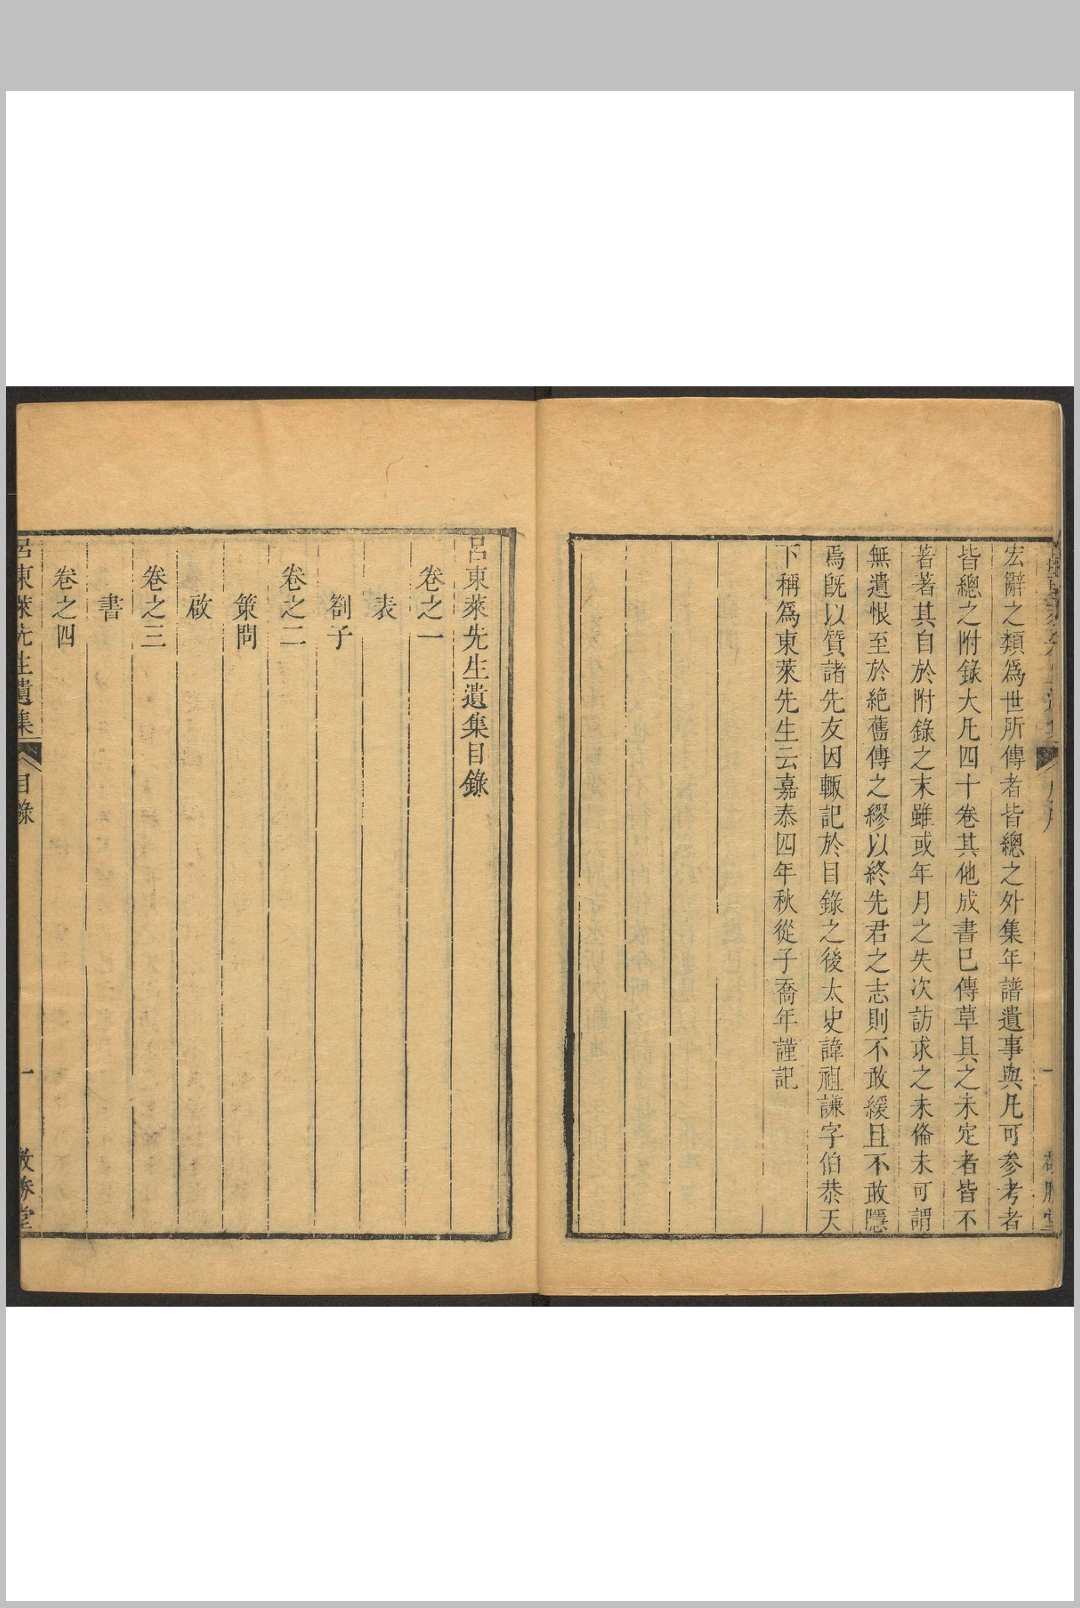 宏辭之類爲世所傳者皆總之外集年譜遺事與凡可參考者
皆總之附錄大凡四十卷其他成書已傳草具之未定者皆不
著著其自於附錄之末雖或年月之失次訪求之未僃未可謂
無遺恨至於絶舊傳之繆以終先君之志則不敢緩且不敢隱
焉旣以質諸先友因輙記於目錄之後太史諱祖謙字伯恭天
下稱爲東萊先生云嘉泰四年秋從子喬年謹記
呂東萊先生遺集目錄
卷之一
表
劄子
卷之二
策問
啟
卷之三
書
卷之四
呂東萊先生遺集 目錄 一 敬勝堂